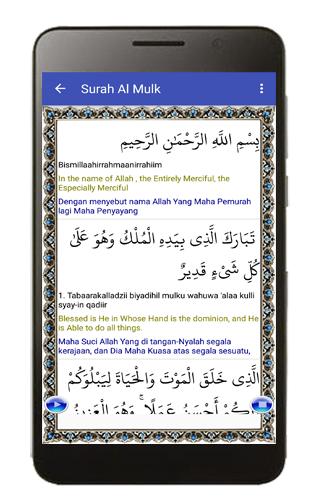 Surah Al Mulk
بِسْمِ اللَّهِ الرَّحْمَٰنِ الرَّحِيمِ
Bismillaahirrahmaanirrahiim
In the name of Allah , the Entirely Merciful, the
Especially Merciful
Dengan menyebut nama Allah Yang Maha Pemurah
lagi Maha Penyayang
تَبَارَكَ الَّذِي بِيَدِهِ الْمُلْكُ وَهُوَ عَلَىٰ
كُلِّ شَيْءٍ قَدِيرٌ
1. Tabaarakalladzii biyadihil mulku wahuwa 'alaa kulli
syay-in qadiir
Blessed is He in Whose Hand is the dominion, and He
is Able to do all things.
Maha Suci Allah Yang di tangan-Nyalah segala
kerajaan, dan Dia Maha Kuasa atas segala sesuatu,
الَّذِي خَلَقَ الْمَوْتَ وَالْحَيَاةَ لِيَبْلُوَكُمْ
أَيُّكُمْ أَحْسَنُ عَمَلًا ۚ وَهُوَ الْعَزِيزُ